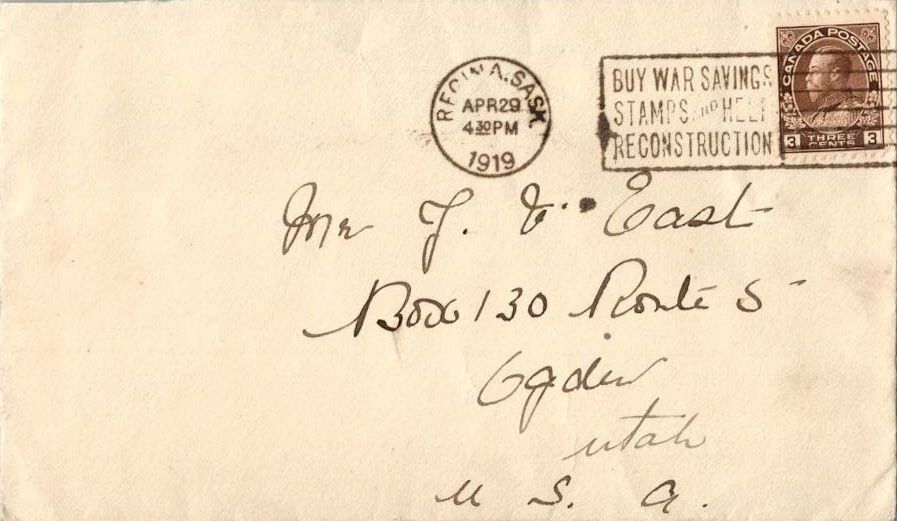 REGINA. SASK.
APR 29
4 30 PM
1919
BUY WAR SAVINGS
STAMPS AND HELP
RECONSTRUCTION
CANADA POSTAGE
3 THREE CENTS 3
Mr J. East
Box 130 Route 5
Ogden
Utah
U. S. A.